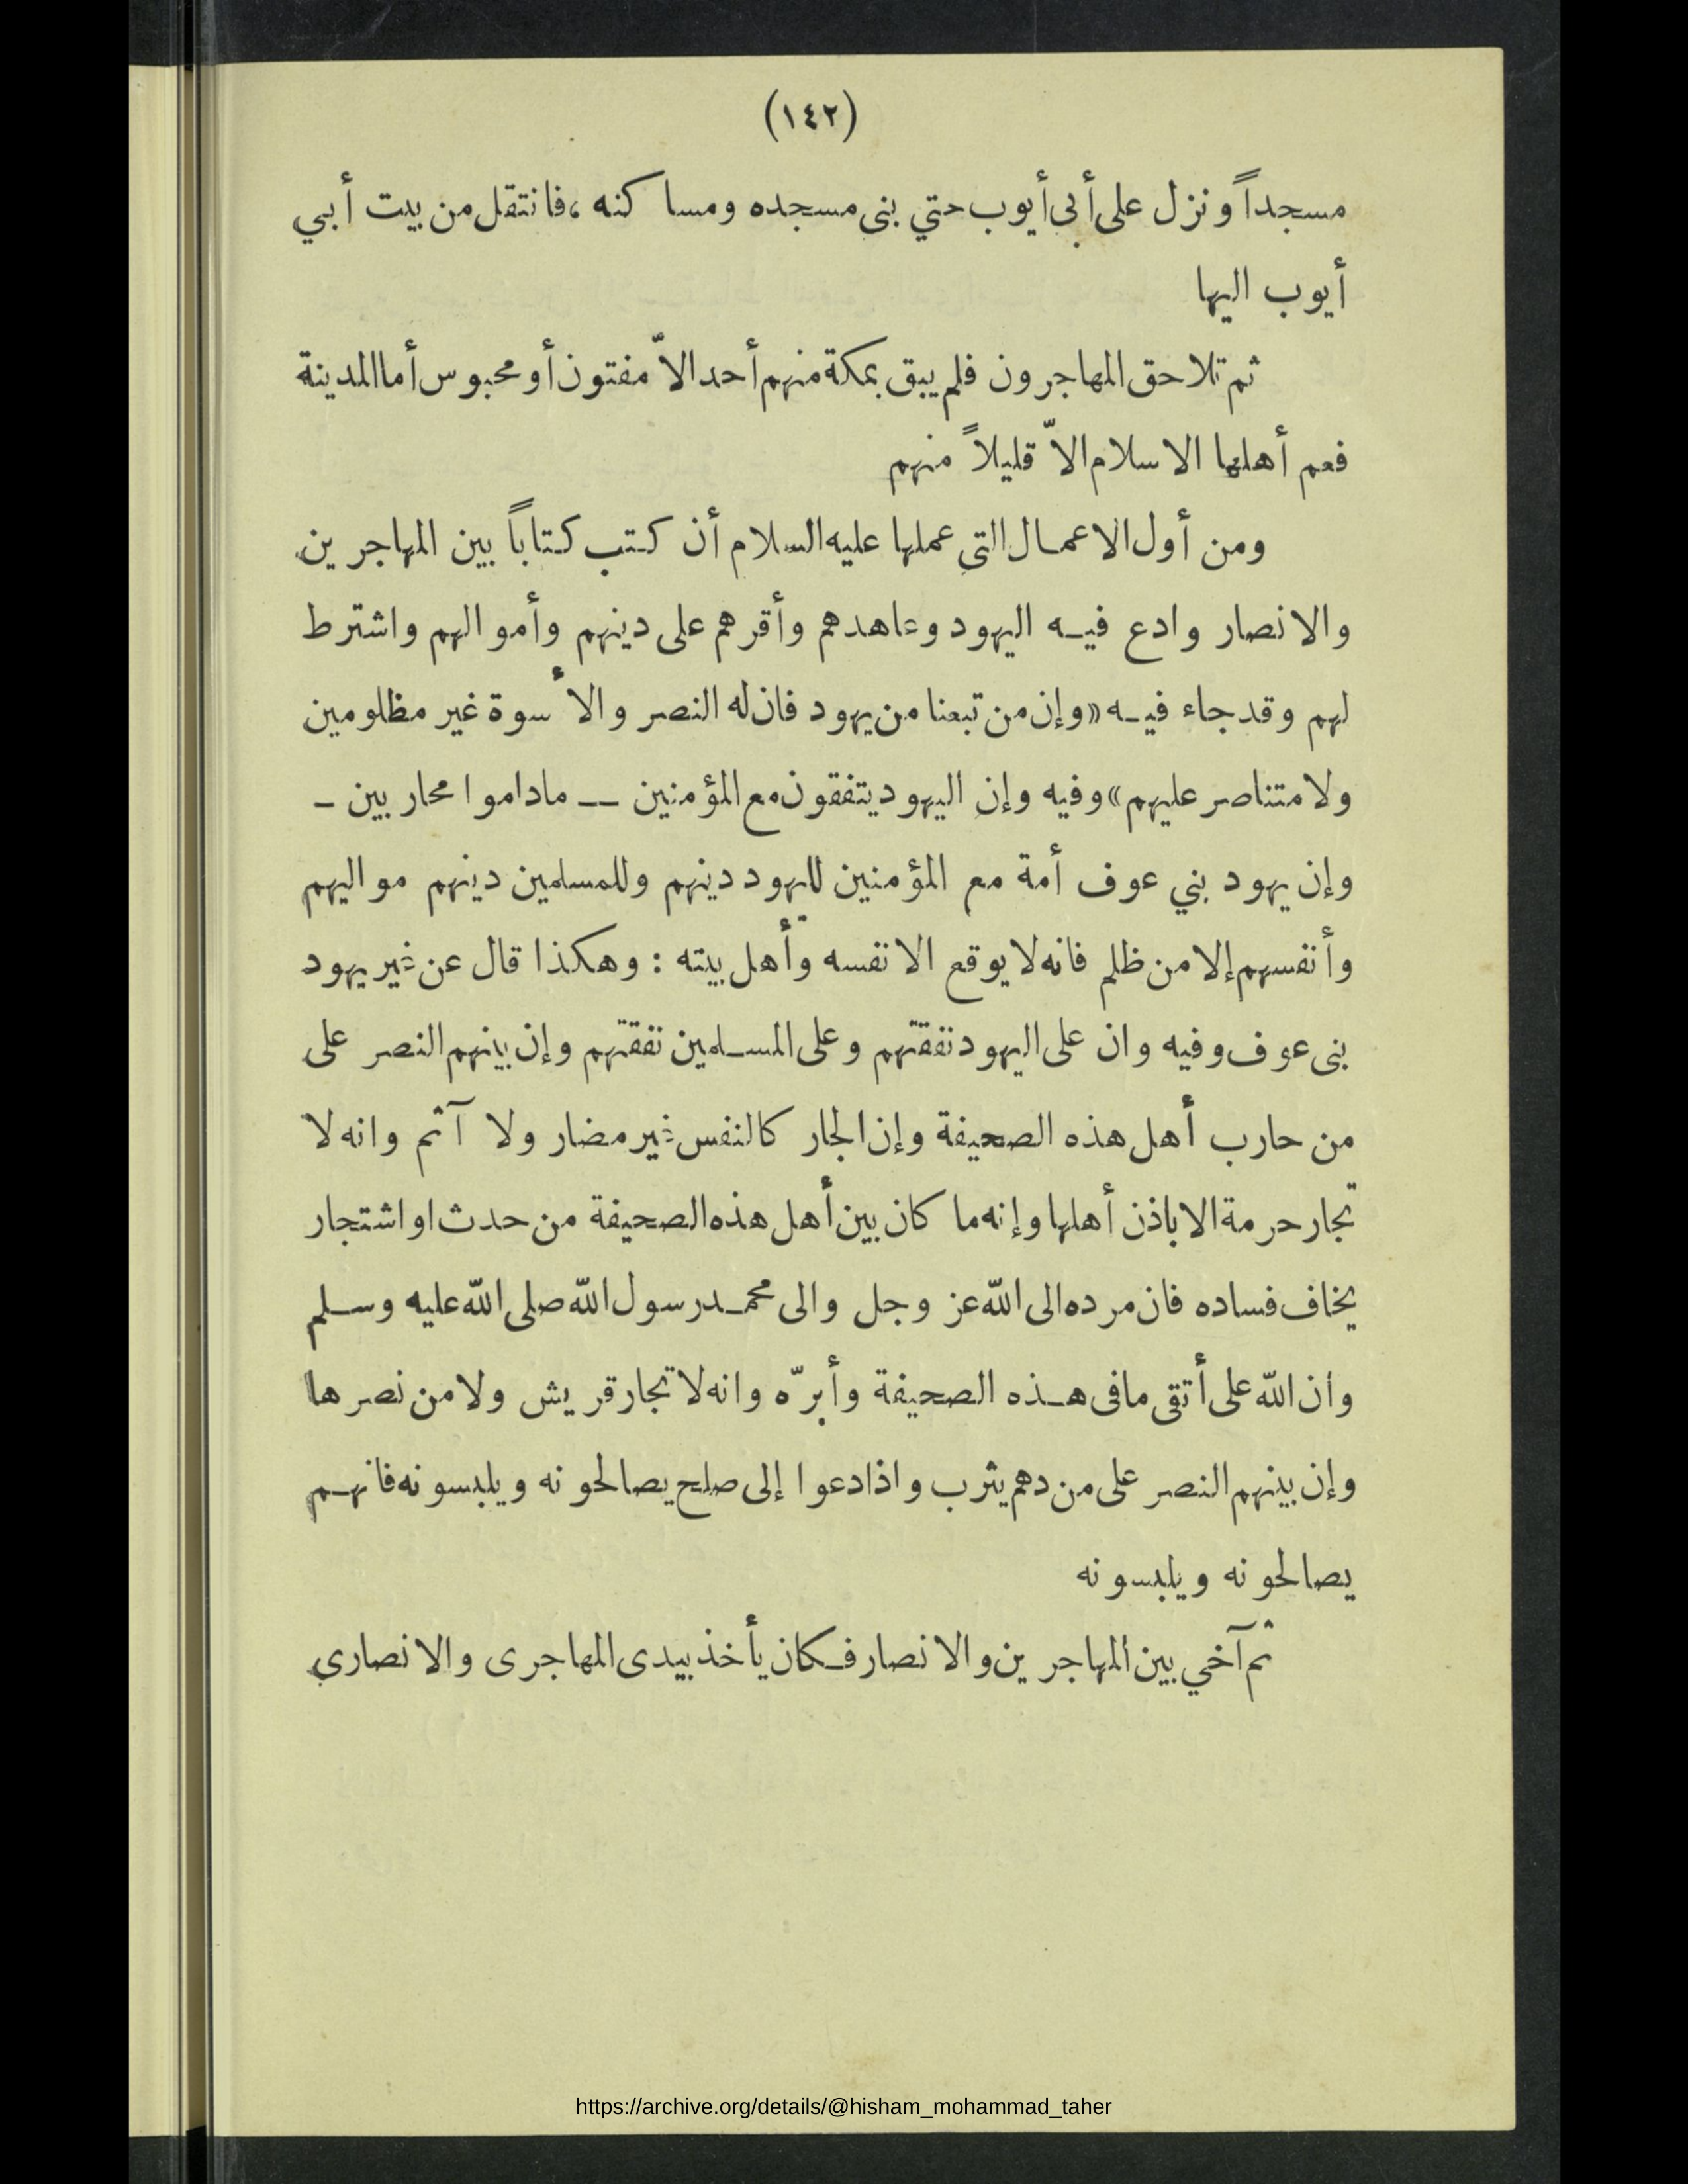 (١٤٢)
مسجداً ونزل على أبى أيوب حتي بنى مسجده ومساكنه ، فانتقل من بيت أبي
أيوب اليها
ثم تلاحق المهاجرون فلم يبق بمكة منهم أحد الاّ مفتون أو محبوس أما المدينة
فعم أهلها الاسلام الاّ قليلاً منهم
ومن أول الاعمال التي عملها عليه السلام أن كتب كتاباً بين المهاجرين
والانصار وادع فيه اليهود وعاهدهم وأقرهم على دينهم وأموالهم واشترط
لهم وقد جاء فيه «وإن من تبعنا من يهود فان له النصر والأسوة غير مظلومين
ولا متناصر عليهم» وفيه وإن اليهود يتفقون مع المؤمنين — ماداموا محاربين —
وإن يهود بني عوف أمة مع المؤمنين لليهود دينهم وللمسلمين دينهم مواليهم
وأنفسهم إلا من ظلم فانه لا يوقع الا نفسه وأهل بيته : وهكذا قال عن غير يهود
بنى عوف وفيه وان على اليهود نفقتهم وعلى المسلمين نفقتهم وإن بينهم النصر على
من حارب أهل هذه الصحيفة وإن الجار كالنفس غير مضار ولا آثم وانه لا
تجار حرمة الا باذن أهلها وإنه ما كان بين أهل هذه الصحيفة من حدث او اشتجار
يخاف فساده فان مرده الى الله عز وجل والى محمد رسول الله صلى الله عليه وسلم
وان الله على أتقى مافى هذه الصحيفة وأبرّه وانه لا تجار قريش ولا من نصرها
وإن بينهم النصر على من دهم يثرب واذا دعوا إلى صلح يصالحونه ويلبسونه فانهم
يصالحونه ويلبسونه
ثم آخي بين المهاجرين والانصار فكان يأخذ بيدى المهاجرى والانصاري
https://archive.org/details/@hisham_mohammad_taher